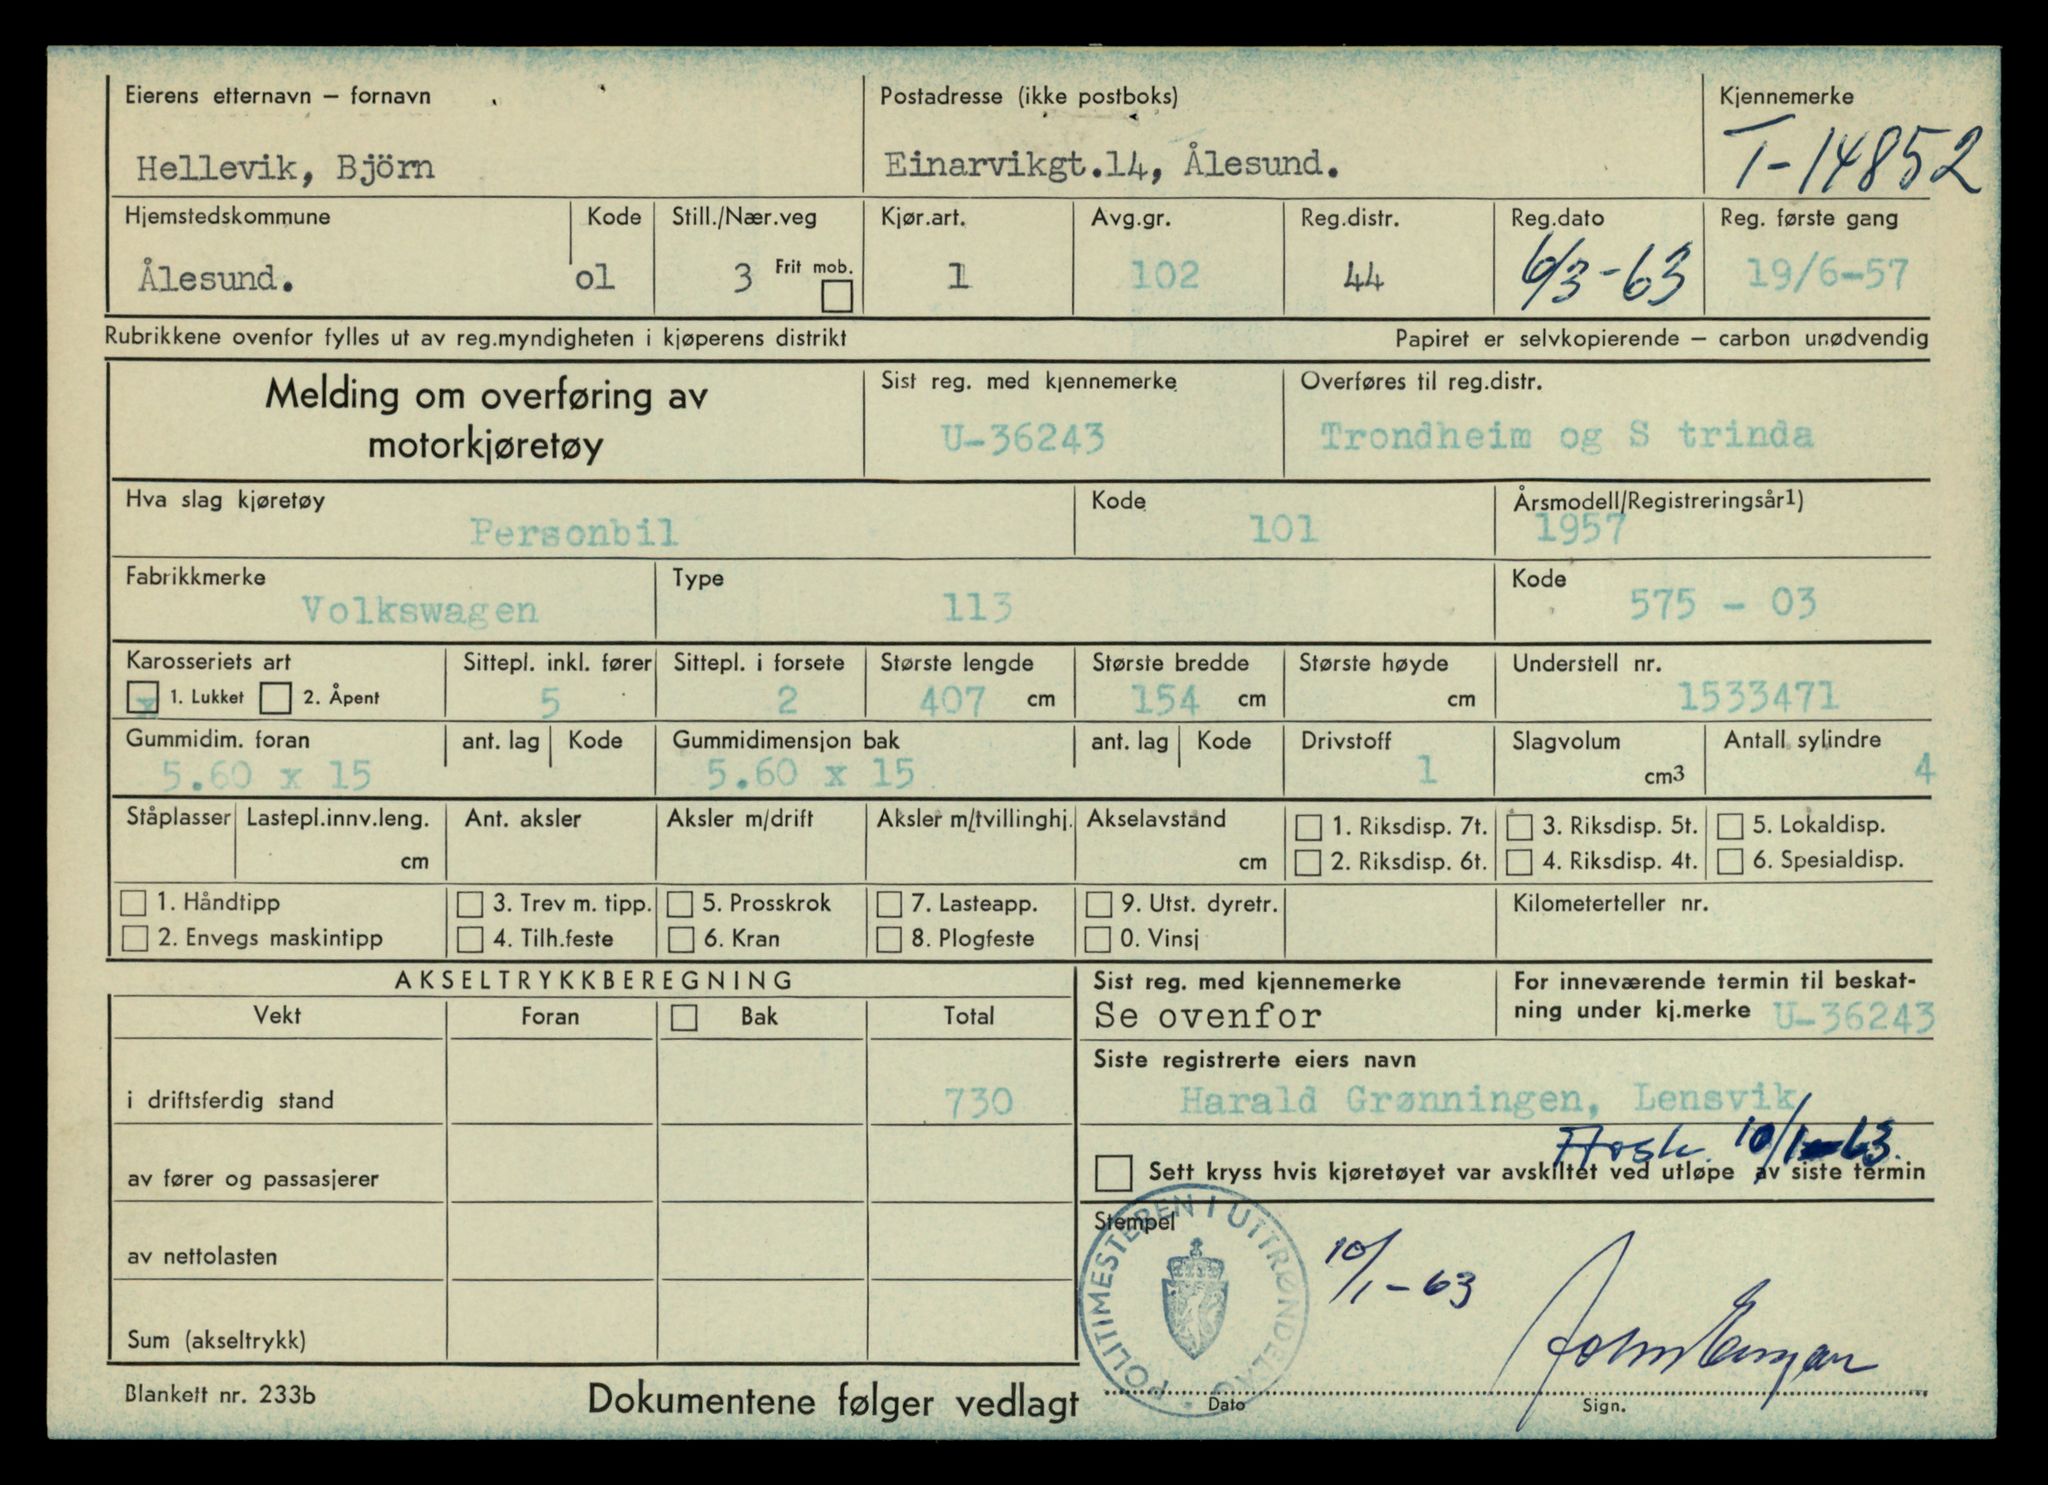 Eierens etternavn – fornavn
Hellevik, Björn
Postadresse (ikke postboks)
Einarvikgt.14, Ålesund.
Kjennemerke
T-14852
Hjemstedskommune
Ålesund.
Kode
01
Still./Nær.veg
3 Frit mob.
Kjør.art.
1
Avg.gr.
102
Reg.distr.
44
Reg.dato
6/3-63
Reg. første gang
19/6-57
Rubrikkene ovenfor fylles ut av reg.myndigheten i kjøperens distrikt
Papiret er selvkopierende – carbon unødvendig
Melding om overføring av
motorkjøretøy
Sist reg. med kjennemerke
U-36243
Overføres til reg.distr.
Trondheim og S trinda
Hva slag kjøretøy
Personbil
Kode
101
Årsmodell/Registreringsår1)
1957
Fabrikkmerke
Volkswagen
Type
113
Kode
575 - 03
Karosseriets art
x 1. Lukket 2. Åpent
Sittepl. inkl. fører
5
Sittepl. i forsete
2
Største lengde
407 cm
Største bredde
154 cm
Største høyde
cm
Understell nr.
1533471
Gummidim. foran
5.60 x 15
ant. lag
Kode
Gummidimensjon bak
5.60 x 15
ant. lag
Kode
Drivstoff
1
Slagvolum
cm3
Antall sylindre
4
Ståplasser
Lastepl.innv.leng.
cm
Ant. aksler
Aksler m/drift
Aksler m/tvillinghj.
Akselavstand
cm
1. Riksdisp. 7t.
2. Riksdisp. 6t.
3. Riksdisp. 5t.
4. Riksdisp. 4t.
5. Lokaldisp.
6. Spesialdisp.
1. Håndtipp
2. Envegs maskintipp
3. Trev m. tipp.
4. Tilh.feste
5. Prosskrok
6. Kran
7. Lasteapp.
8. Plogfeste
9. Utst. dyretr.
0. Vinsj
Kilometerteller nr.
AKSELTRYKKBEREGNING
Vekt
Foran
Bak
Total
i driftsferdig stand
730
av fører og passasjerer
av nettolasten
Sum (akseltrykk)
Sist reg. med kjennemerke
Se ovenfor
For inneværende termin til beskat-
ning under kj.merke U-36243
Siste registrerte eiers navn
Harald Grønningen, Lensvik
10/1-63.
Sett kryss hvis kjøretøyet var avskiltet ved utløpe av siste termin
Stempel
POLITIMESTEREN I UTTRØNDELAG
10/1-63
Dato
Sign.
Blankett nr. 233b
Dokumentene følger vedlagt